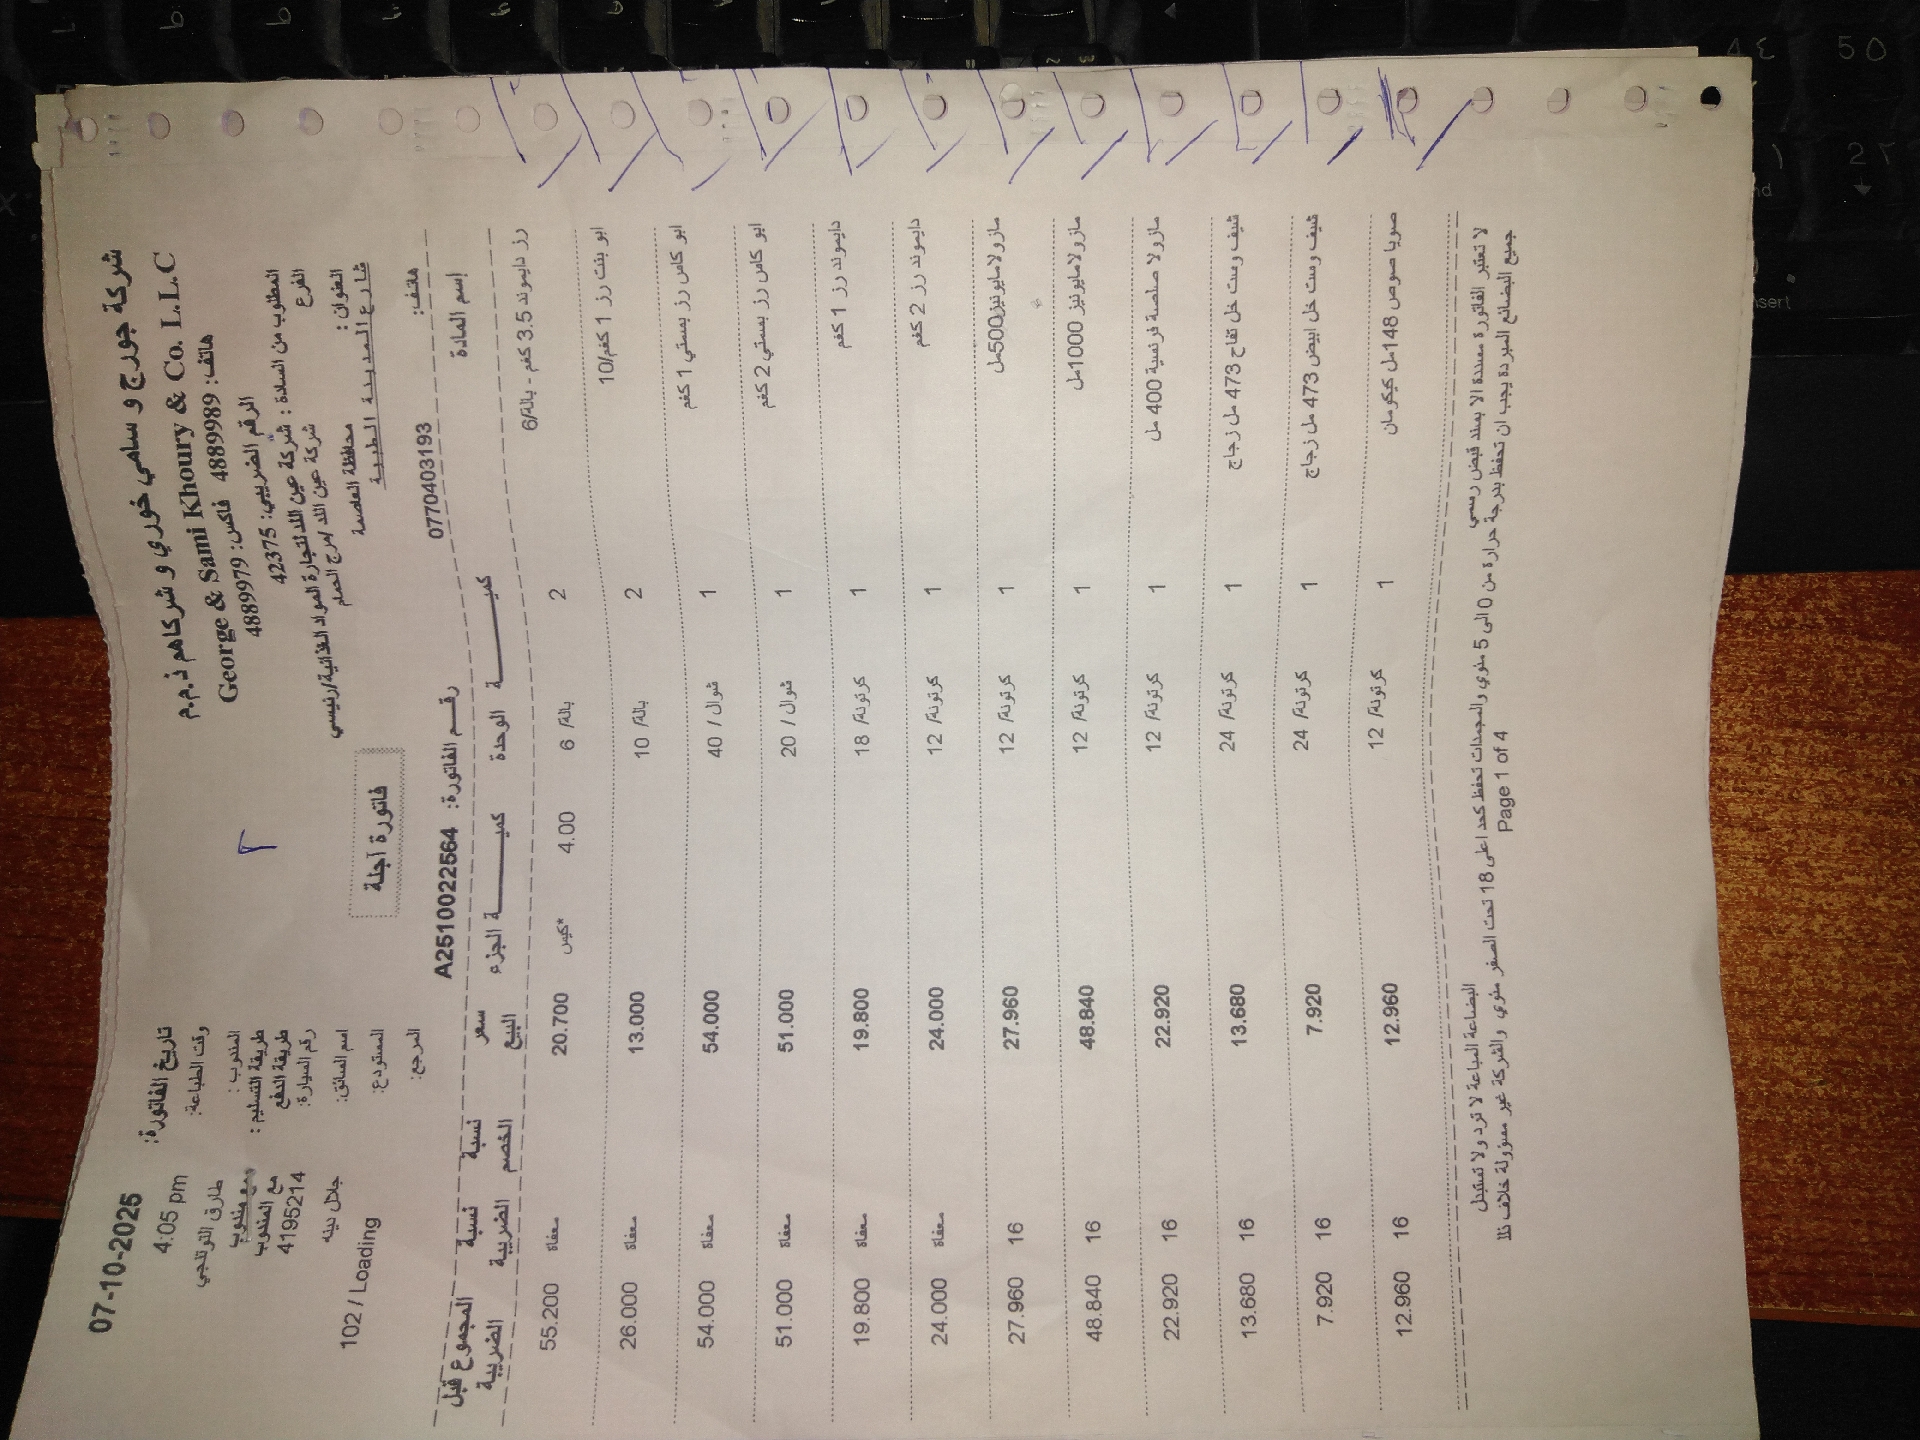 شركة جورج و سامي خوري و شركاهم ذ.م.م
George & Sami Khoury & Co. L.L.C
هاتف: 4889989 فاكس: 4889979
الرقم الضريبي: 42375
المطلوب من السادة : شركة عين اللد لتجارة المواد الغذائية/رئيسي
الفرع شركة عين اللد /مرج الحمام
العنوان : محافظة العاصمة
شارع المدينة الطبية
هاتف: 0770403193
تاريخ الفاتورة: 07-10-2025
وقت الطباعة: 4:05 pm
المندوب :
طريقة التسليم : مع مندوب
طريقة الدفع مع المندوب
رقم السيارة: 4195214
اسم السائق:
المستودع: 102 / Loading
المرجع:
فاتورة آجلة
رقم الفاتورة: A2510022564
إسم المادة كميـــة الوحدة كميـــة الجزء سعر البيع نسبة الخصم نسبة الضريبة المجموع قبل الضريبة
رز دايموند 3.5 كغم - بالة/6 2 بالة/ 6 4.00 كيس* 20.700 معفاة 55.200
ابو بنت رز 1 كغم/10 2 بالة/ 10 13.000 معفاة 26.000
ابو كاس رز بسمتي 1 كغم 1 شوال / 40 54.000 معفاة 54.000
ابو كاس رز بسمتي 2 كغم 1 شوال / 20 51.000 معفاة 51.000
دايموند رز 1 كغم 1 كرتونة/ 18 19.800 معفاة 19.800
دايموند رز 2 كغم 1 كرتونة/ 12 24.000 معفاة 24.000
مازولا مايونيز 500مل 1 كرتونة/ 12 27.960 16 27.960
مازولا مايونيز 1000مل 1 كرتونة/ 12 48.840 16 48.840
مازولا صلصة فرنسية 400 مل 1 كرتونة/ 12 22.920 16 22.920
شيف ومست خل تفاح 473 مل زجاج 1 كرتونة/ 24 13.680 16 13.680
شيف ومست خل ابيض 473 مل زجاج 1 كرتونة/ 24 7.920 16 7.920
صويا صوص 148مل كيكومان 1 كرتونة/ 12 12.960 16 12.960
لا تعتبر الفاتورة مسددة الا بسند قبض رسمي البضاعة المباعة لا ترد ولا تستبدل
جميع البضائع المبردة يجب ان تحفظ بدرجة حرارة من 0 الى 5 مئوي والمجمدات تحفظ كحد اعلى 18 تحت الصفر مئوي والشركة غير مسؤولة خلاف ذلك
Page 1 of 4